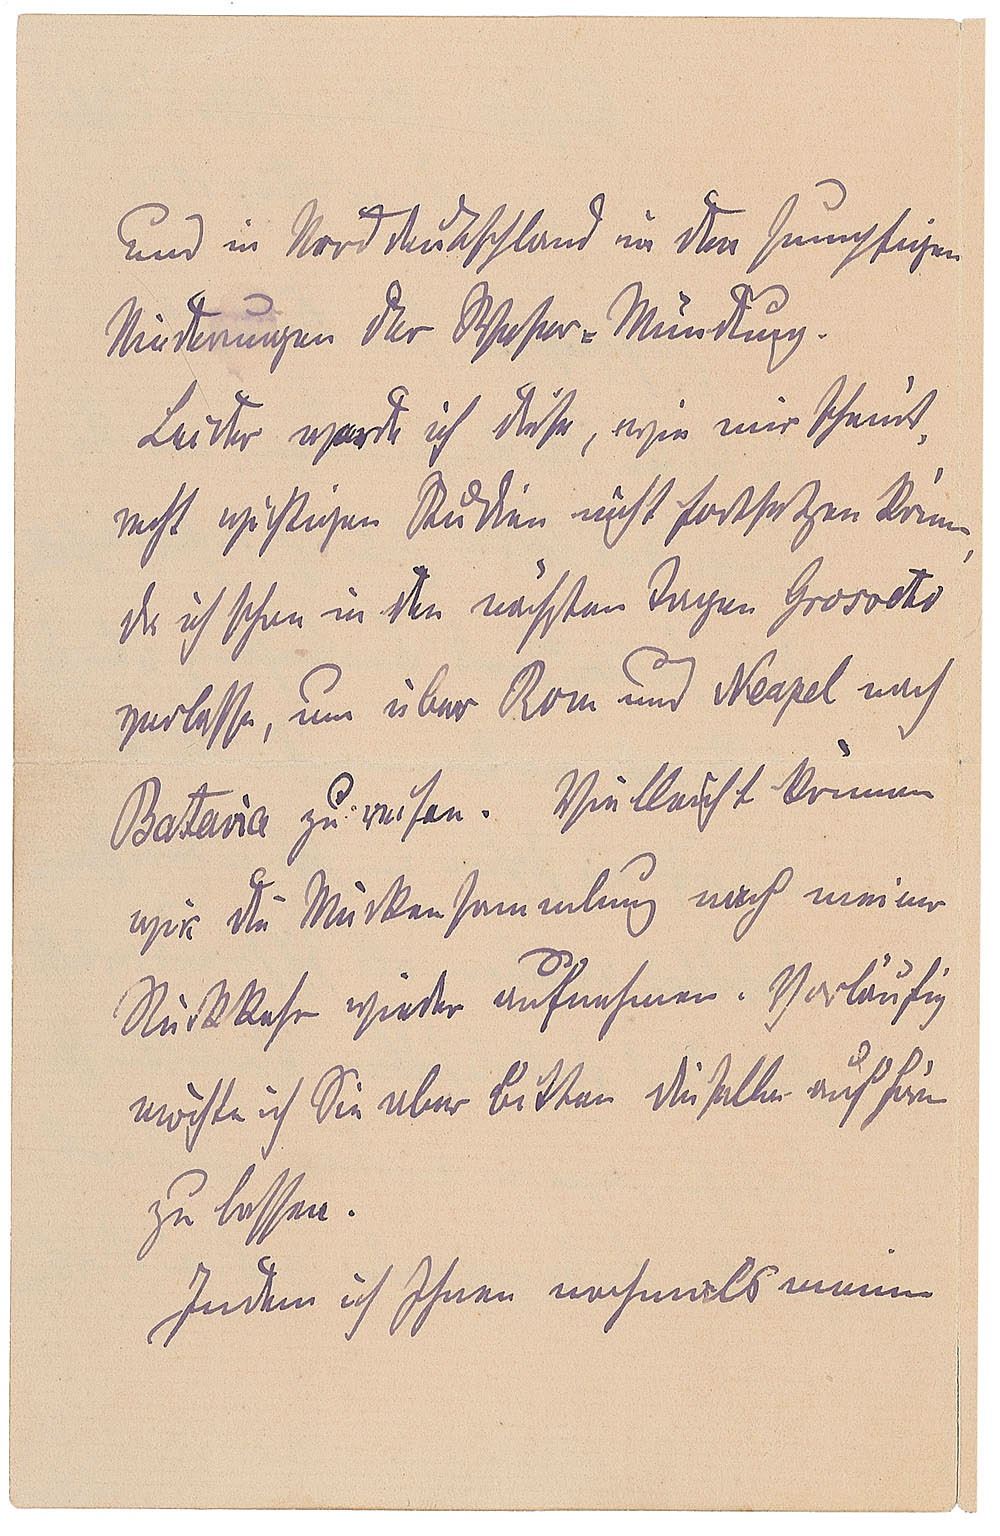 und in Norddeutschland in den sumpfigen
Niederungen der Weser=Mündung.
Leider werde ich diese, wie mir scheint,
recht wichtigen Studien nicht fortsetzen können,
da ich schon in den nächsten Tagen Grosseto
verlasse, um über Rom und Neapel nach
Batavia zu reisen. Vielleicht können
wir die Mückensammlung nach meiner
Rückkehr wieder aufnehmen. Vorläufig
möchte ich Sie aber bitten dieselbe aufhören
zu lassen.
Indem ich Ihnen nochmals meinen